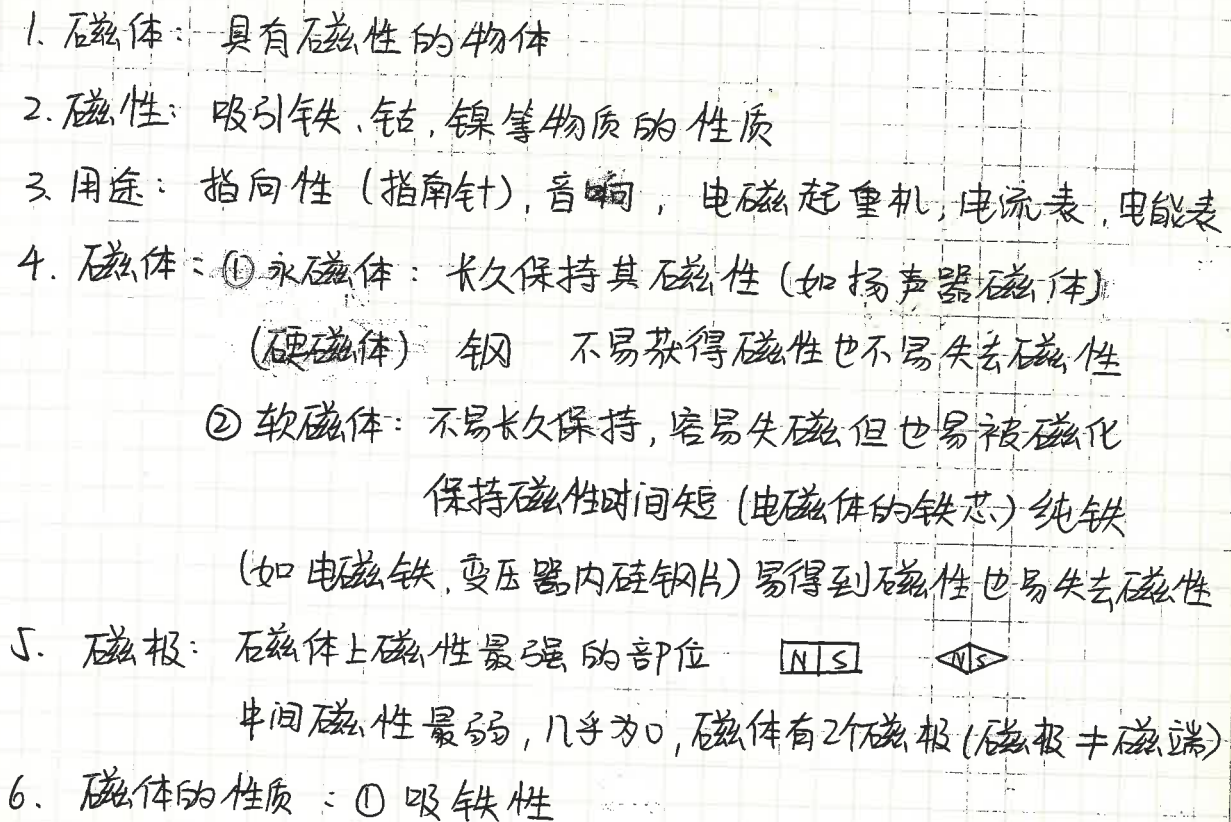 1. 磁体：具有磁性的物体
2. 磁性：吸引铁、钴，镍等物质的性质
3. 用途：指向性（指南针），音响，电磁起重机，电流表，电能表
4. 磁体：① 永磁体：长久保持其磁性（如扬声器磁体）
（硬磁体） 钢 不易获得磁性也不易失去磁性
② 软磁体：不易长久保持，容易失磁但也易被磁化
保持磁性时间短（电磁体的铁芯）纯铁
（如电磁铁，变压器内硅钢片）易得到磁性也易失去磁性
5. 磁极：磁体上磁性最强的部位 N S N S
中间磁性最弱，几乎为0，磁体有2个磁极（磁极≠磁端）
6. 磁体的性质：① 吸铁性